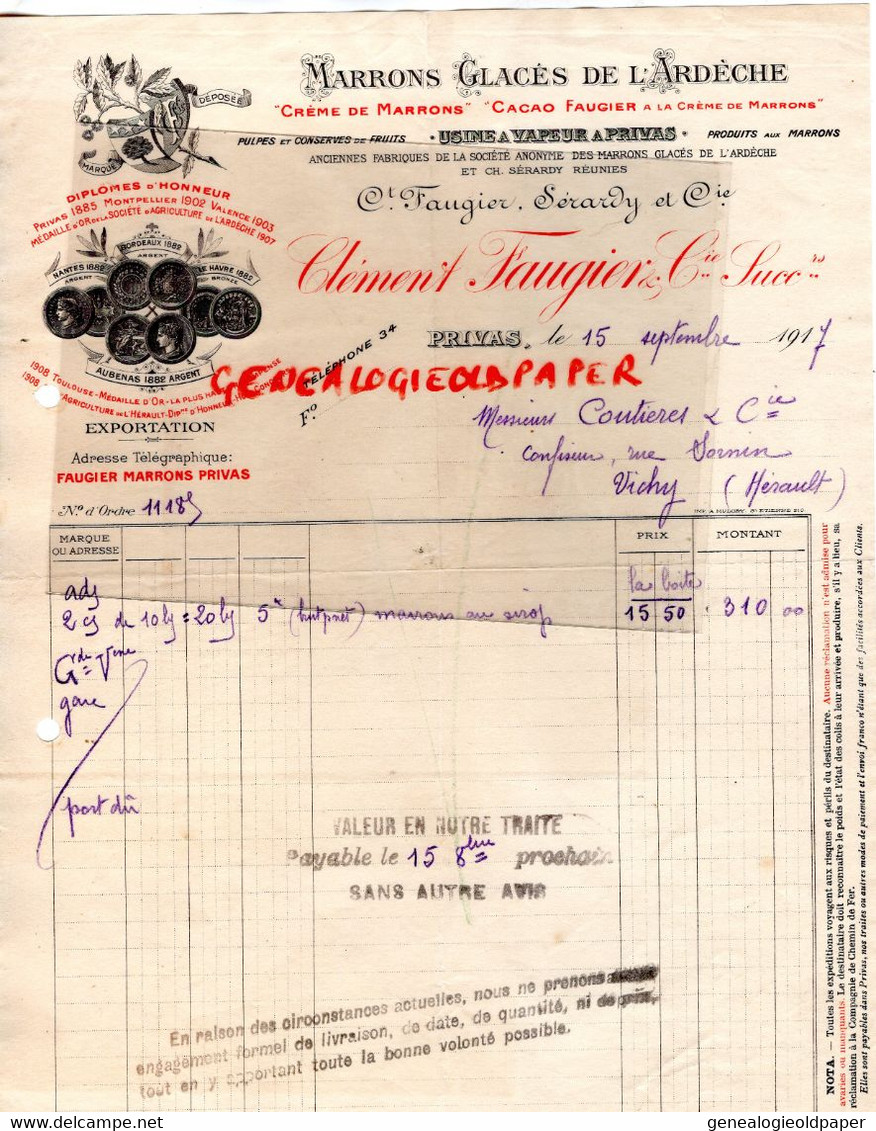 DÉPOSÉE
MARQUE
MARRONS GLACÉS DE L'ARDÈCHE
"CRÈME DE MARRONS" "CACAO FAUGIER A LA CRÈME DE MARRONS"
PULPES ET CONSERVES DE FRUITS • USINE A VAPEUR A PRIVAS • PRODUITS AUX MARRONS
ANCIENNES FABRIQUES DE LA SOCIÉTÉ ANONYME DES MARRONS GLACÉS DE L'ARDÈCHE
ET CH. SÉRARDY RÉUNIES
Ct. Faugier, Sérardy et Cie
Clément Faugier & Cie Succrs
DIPLOMES D'HONNEUR
PRIVAS 1885 MONTPELLIER 1902 VALENCE 1903
MÉDAILLE D'OR DE LA SOCIÉTÉ D'AGRICULTURE DE L'ARDÈCHE 1907
BORDEAUX 1882
ARGENT
NANTES 1882
ARGENT
LE HAVRE 1882
BRONZE
AUBENAS 1882 ARGENT
1908 TOULOUSE - MÉDAILLE D'OR - LA PLUS HAUTE RÉCOMPENSE
1908 AGRICULTURE DE L'HÉRAULT - DIPme D'HONNEUR
EXPORTATION
Adresse Télégraphique:
FAUGIER MARRONS PRIVAS
TÉLÉPHONE 34
PRIVAS, le 15 septembre 1917
GENEALOGIEOLDPAPER
Fo.
Messieurs Coutieres & Cie
Confiseur, rue Sornin
Vichy (Hérault)
No. d'Ordre 11185
ST ETIENNE
MARQUE OU ADRESSE
PRIX
MONTANT
la boite
adj
2 cs de 10 = 20 5k marrons au sirop 15 50 310 00
Gde Vsse
gare
port dû
VALEUR EN NOTRE TRAITE
Payable le 15 8bre prochain
SANS AUTRE AVIS
En raison des circonstances actuelles, nous ne prenons aucun
engagement formel de livraison, de date, de quantité, ni de prix,
tout en y apportant toute la bonne volonté possible.
NOTA. — Toutes les expéditions voyagent aux risques et périls du destinataire. Aucune réclamation n'est admise pour
avaries ou manquants. Le destinataire doit reconnaître le poids et l'état des colis à leur arrivée et produire, s'il y a lieu, sa
réclamation à la Compagnie de Chemin de Fer.
Elles sont payables dans Privas, nos traites ou autres modes de paiement et l'envoi franco n'étant que des facilités accordées aux Clients.
delcampe.net
genealogieoldpaper